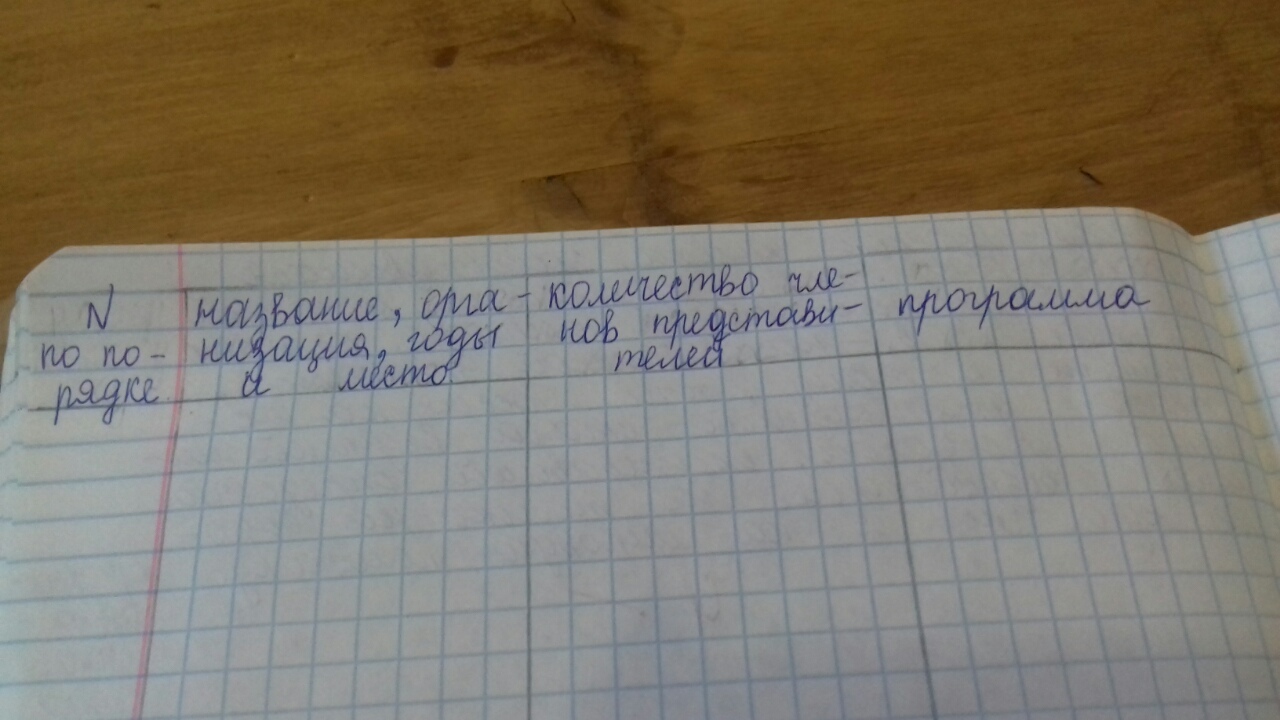 N по порядке
название, орга-
низация, годы
и место
количество чле-
нов представи-
телей
программа